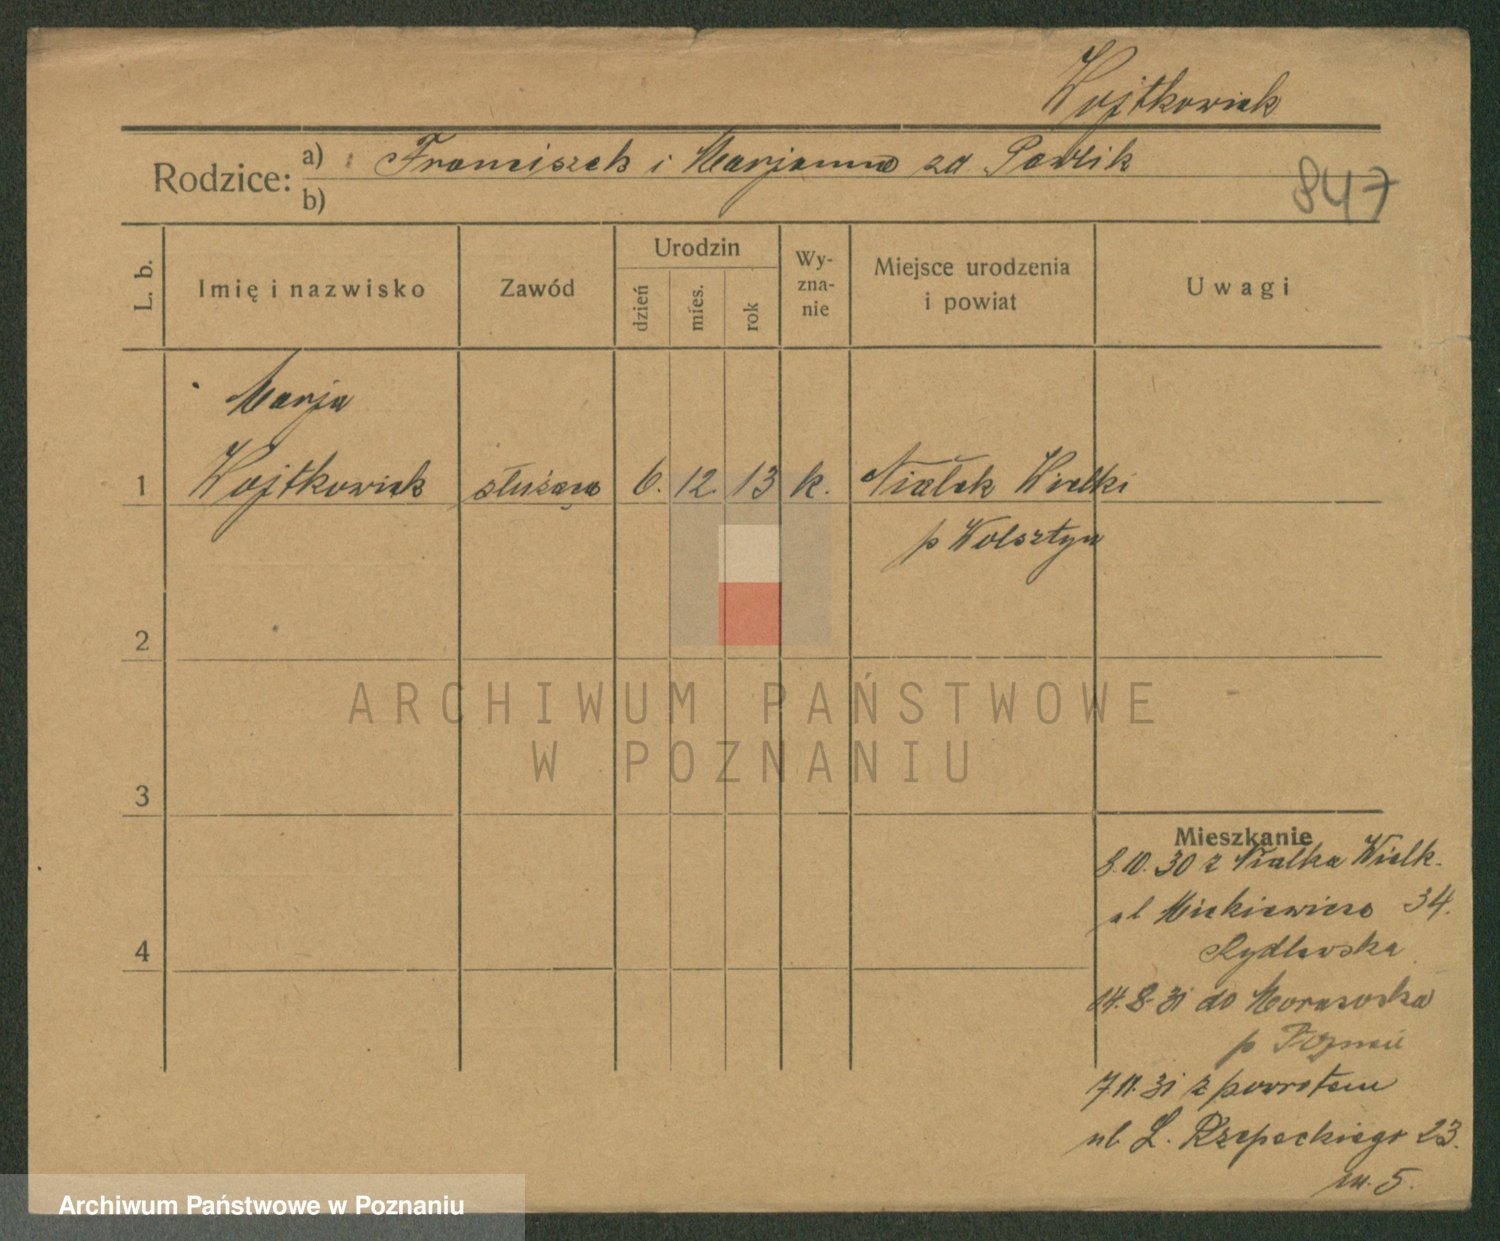 Wojtkowiak
Rodzice: a) Franciszek i Marjanna zd. Pawlik
b)
847
L. b.
Imię i nazwisko
Zawód
Urodzin
dzień
mies.
rok
Wy-
zna-
nie
Miejsce urodzenia
i powiat
Uwagi
Marja
1 Wojtkowiak służąca 6. 12. 13 k. Niałek Wielki
p Wolsztyn
2
3
4
ARCHIWUM PAŃSTWOWE
W POZNANIU
Mieszkanie
8.10.30 z Niałka Wielk.
ul Mickiewicza 34.
Rydlewska
14.8.31 do Morasoska
p Poznań
7.11.31 z powrotem
ul. L. Rzepeckiego 23.
m. 5.
Archiwum Państwowe w Poznaniu